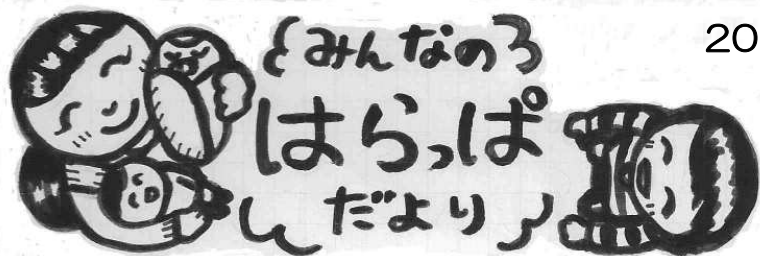 みんなの
はらっぱ
だより
20